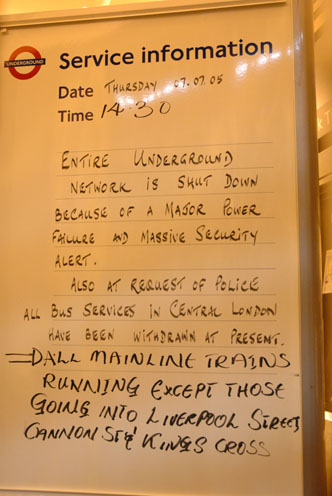 UNDERGROUND
Service information
Date THURSDAY 07.07.05
Time 14.30
ENTIRE UNDERGROUND
NETWORK IS SHUT DOWN
BECAUSE OF A MAJOR POWER
FAILURE AND MASSIVE SECURITY
ALERT.
ALSO AT REQUEST OF POLICE
ALL BUS SERVICES IN CENTRAL LONDON
HAVE BEEN WITHDRAWN AT PRESENT.
⇒ ALL MAINLINE TRAINS
RUNNING EXCEPT THOSE
GOING INTO LIVERPOOL STREET
CANNON ST & KINGS CROSS